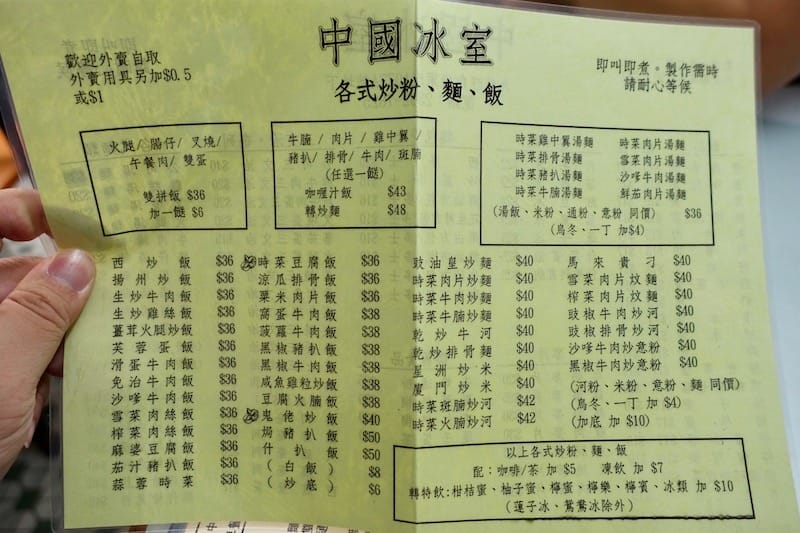 中國冰室
各式炒粉、麵、飯
歡迎外賣自取
外賣用具另加$0.5
或$1
即叫即煮。製作需時
請耐心等候
火腿/ 腸仔/ 叉燒/
午餐肉/ 雙蛋
雙拼飯 $36
加一餸 $6
牛腩 / 肉片 / 雞中翼 /
豬扒/ 排骨/ 牛肉/ 斑腩
(任選一餸)
咖喱汁飯 $43
轉炒麵 $48
時菜雞中翼湯麵 時菜肉片湯麵
時菜排骨湯麵 雪菜肉片湯麵
時菜豬扒湯麵 沙嗲牛肉湯麵
時菜牛腩湯麵 鮮茄肉片湯麵
(湯飯、米粉、通粉、意粉 同價) $36
(烏冬、一丁 加$4)
西炒飯 $36
揚州炒飯 $36
生炒牛肉飯 $36
生炒雞絲飯 $36
薑茸火腿炒飯 $36
芙蓉蛋飯 $36
滑蛋牛肉飯 $36
免治牛肉飯 $36
沙嗲牛肉飯 $36
雪菜肉絲飯 $36
榨菜肉絲飯 $36
麻婆豆腐飯 $36
茄汁豬扒飯 $36
蒜蓉時菜 $36
時菜豆腐飯 $36
涼瓜排骨飯 $36
粟米肉片飯 $36
窩蛋牛肉飯 $38
菠蘿牛肉飯 $38
黑椒豬扒飯 $38
黑椒牛肉飯 $38
咸魚雞粒炒飯 $38
豆腐火腩飯 $38
鬼佬炒飯 $40
焗豬扒飯 $50
什扒飯 $50
(白飯) $8
(炒底) $6
豉油皇炒麵 $40
時菜肉片炒麵 $40
時菜牛肉炒麵 $40
時菜牛腩炒麵 $40
乾炒牛河 $40
乾炒排骨麵 $40
星洲炒米 $40
廈門炒米 $40
時菜斑腩炒河 $42
時菜火腩炒河 $42
馬來貴刁 $40
雪菜肉片炆麵 $40
榨菜肉片炆麵 $40
豉椒牛肉炒河 $40
豉椒排骨炒河 $40
沙嗲牛肉炒意粉 $40
黑椒牛肉炒意粉 $40
(河粉、米粉、意粉、麵 同價)
(烏冬、一丁 加 $4)
(加底 加 $10)
以上各式炒粉、麵、飯
配:咖啡/茶 加 $5 凍飲 加 $7
轉特飲:柑桔蜜、柚子蜜、檸蜜、檸樂、檸賓、冰類 加 $10
(蓮子冰、鴛鴦冰除外)